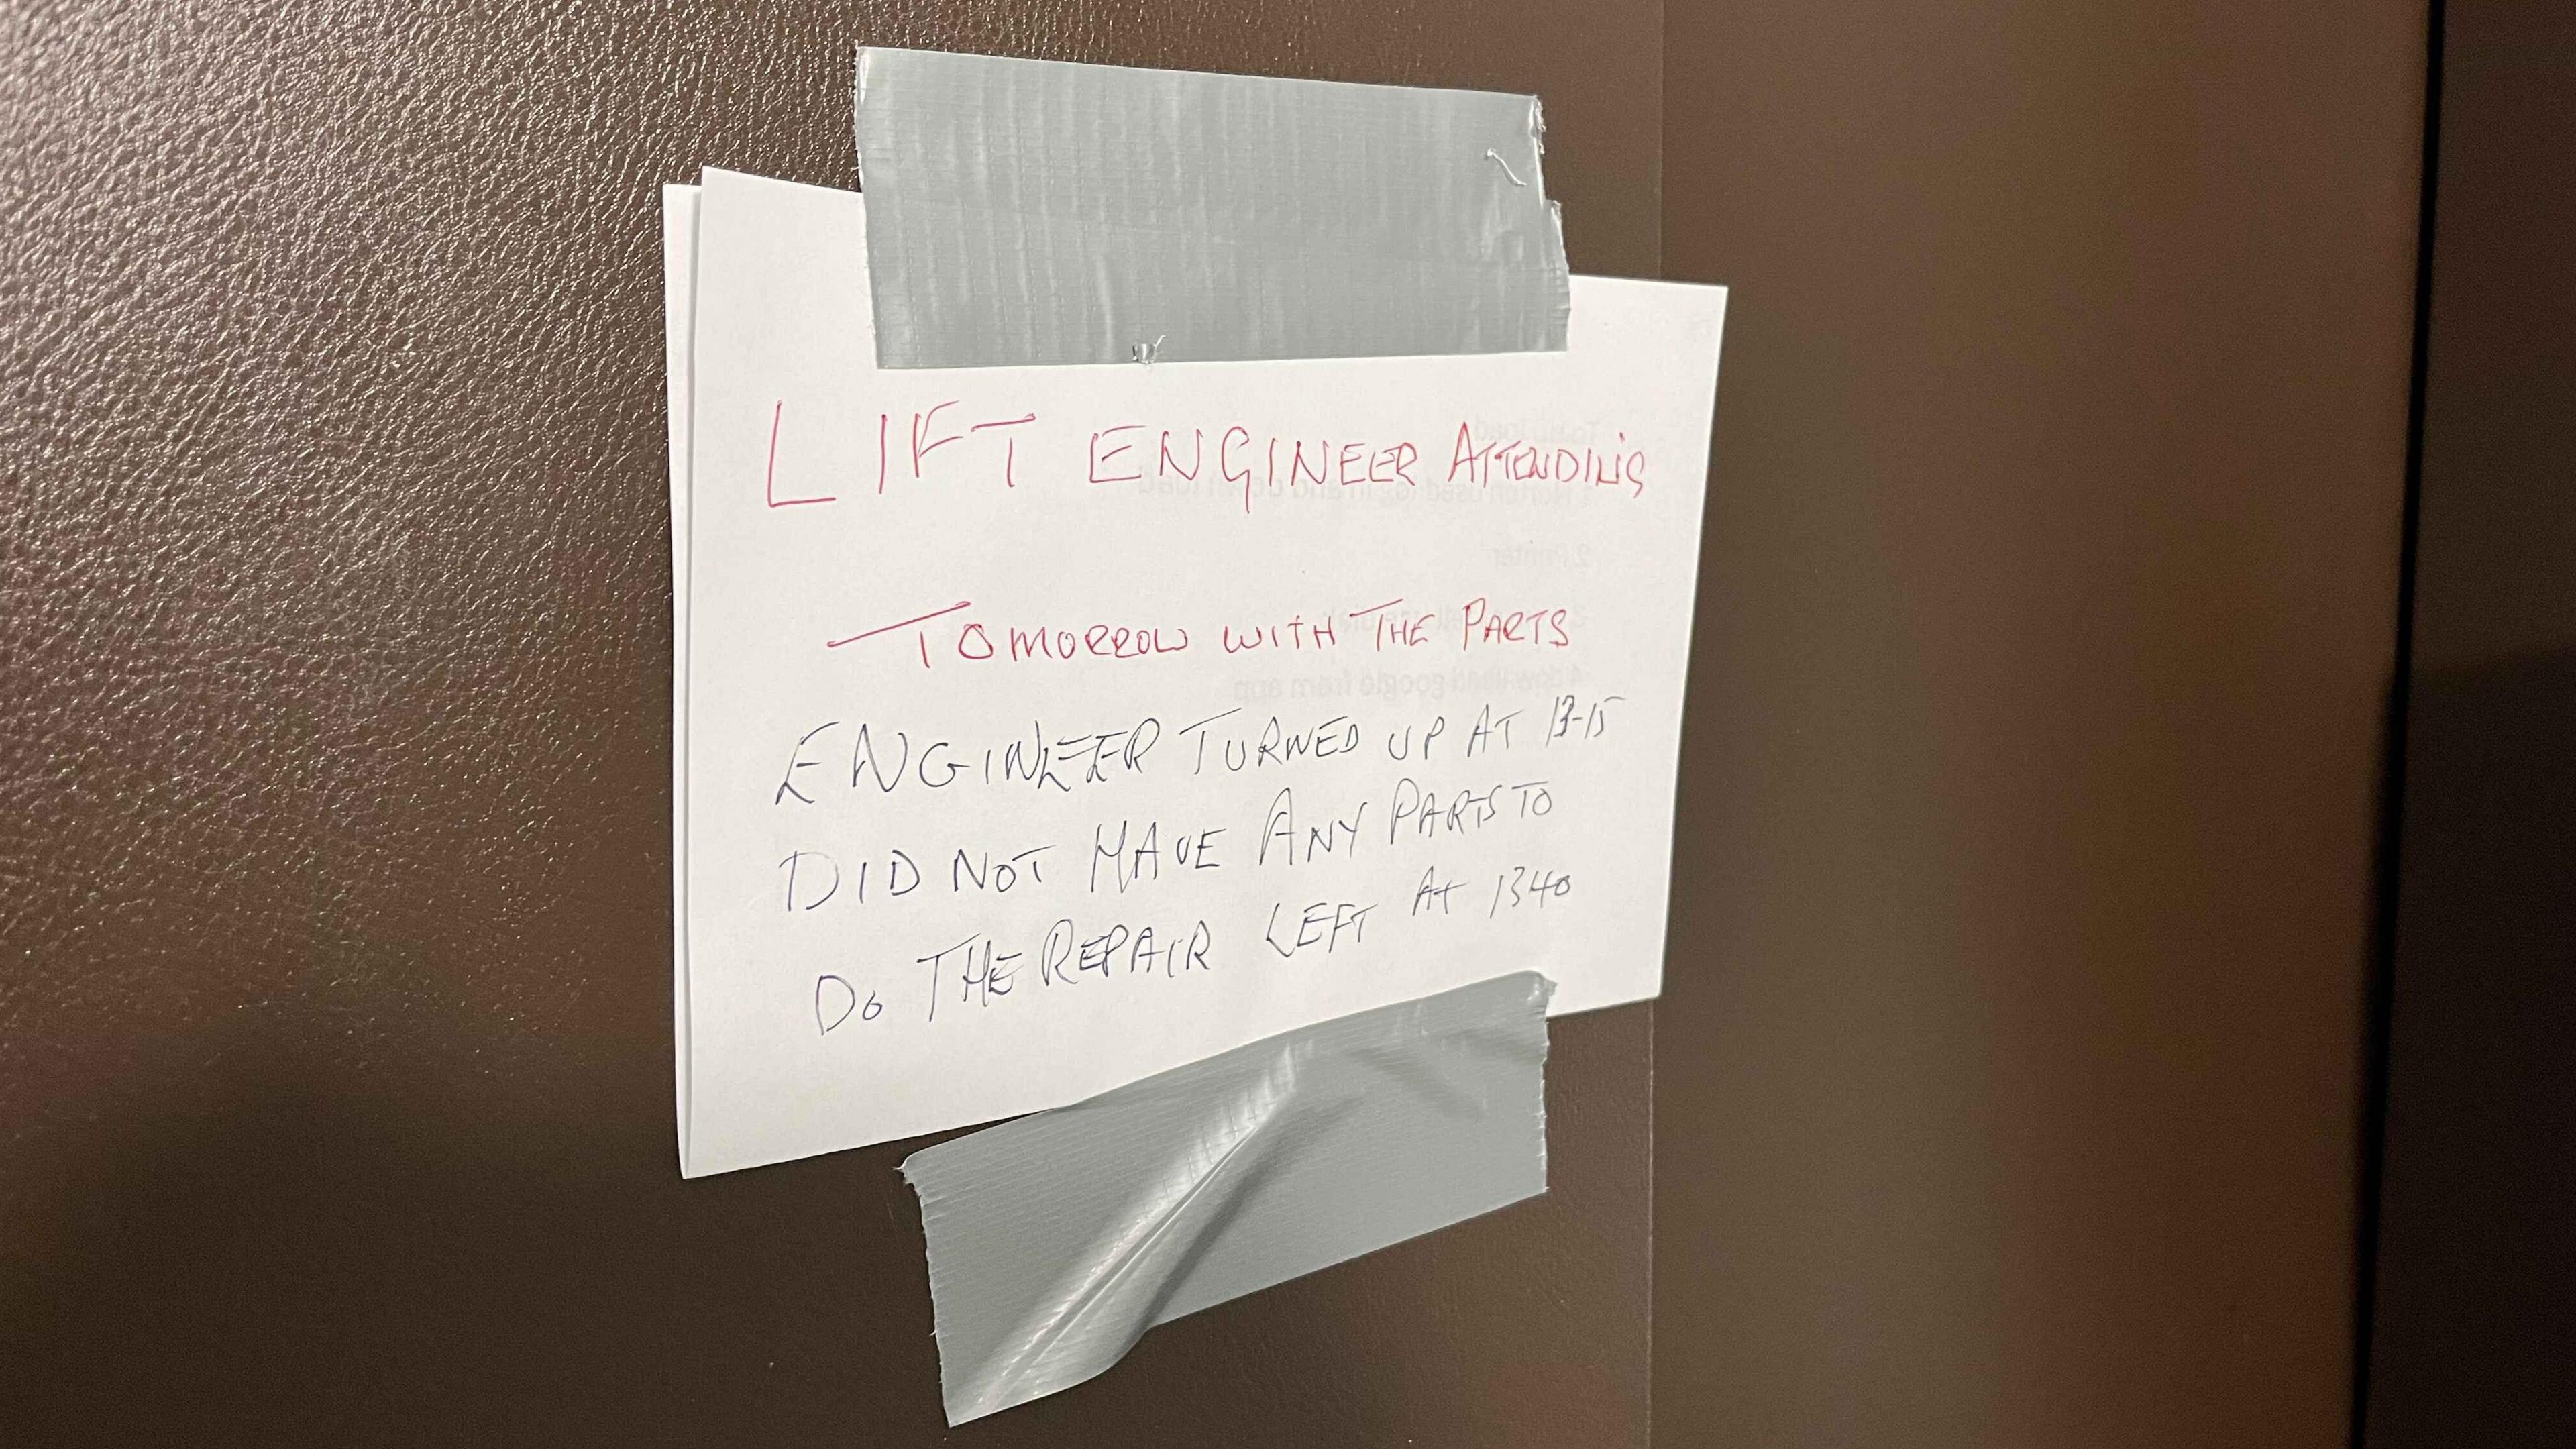 LIFT ENGINEER ATTENDING
TOMORROW WITH THE PARTS
ENGINEER TURNED UP AT 13-15
DID NOT HAVE ANY PARTS TO
DO THE REPAIR LEFT AT 1340